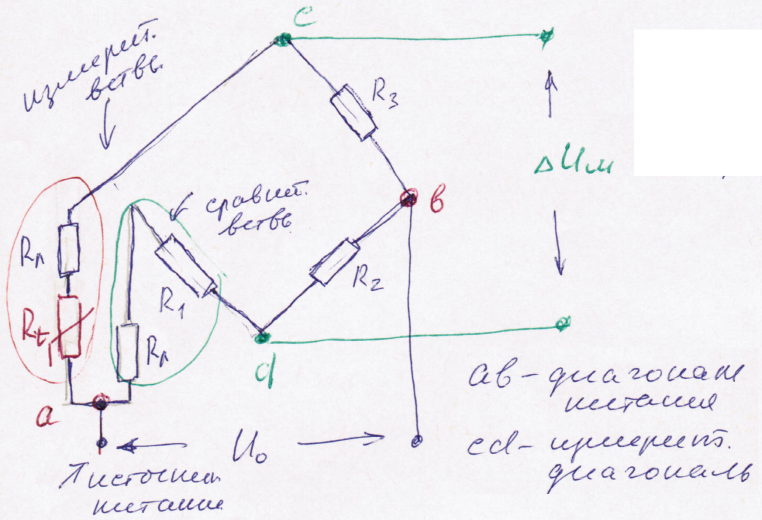 c
измерит.
ветвь
R₃
ΔUм
сравнит.
ветвь
в
Rл
R₂
R₁
Rt
Rл
d
a
ав – диагональ
питания
U₀
cd – измерит.
диагональ
источник
питания